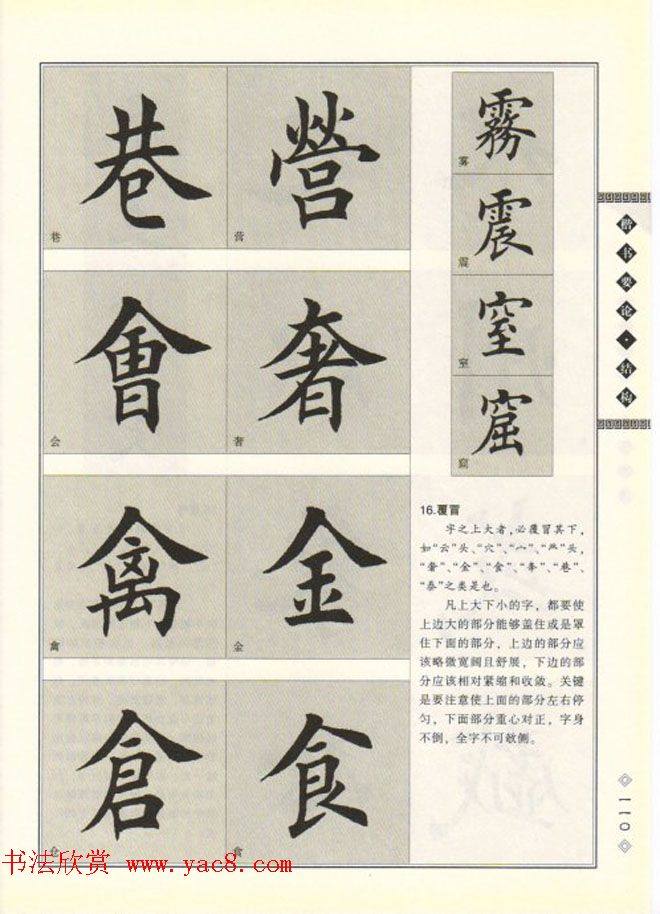 巷 營
巷 营
會 奢
会 奢
禽 金
禽 金
倉 食
仓 食
霧
雾
震
震
窒
窒
窟
窟
16.覆冒
字之上大者，必覆冒其下，
如“云”头、“穴”、“宀”、“”头，
“奢”、“金”、“食”、“夆”、“巷”、
“泰”之类是也。
凡上大下小的字，都要使
上边大的部分能够盖住或是罩
住下面的部分，上边的部分应
该略微宽阔且舒展，下边的部
分应该相对紧缩和收敛。关键
是要注意使上面的部分左右停
匀，下面部分重心对正，字身
不倒，全字不可欹侧。
楷书要论·结构
110
书法欣赏 www.yac8.com